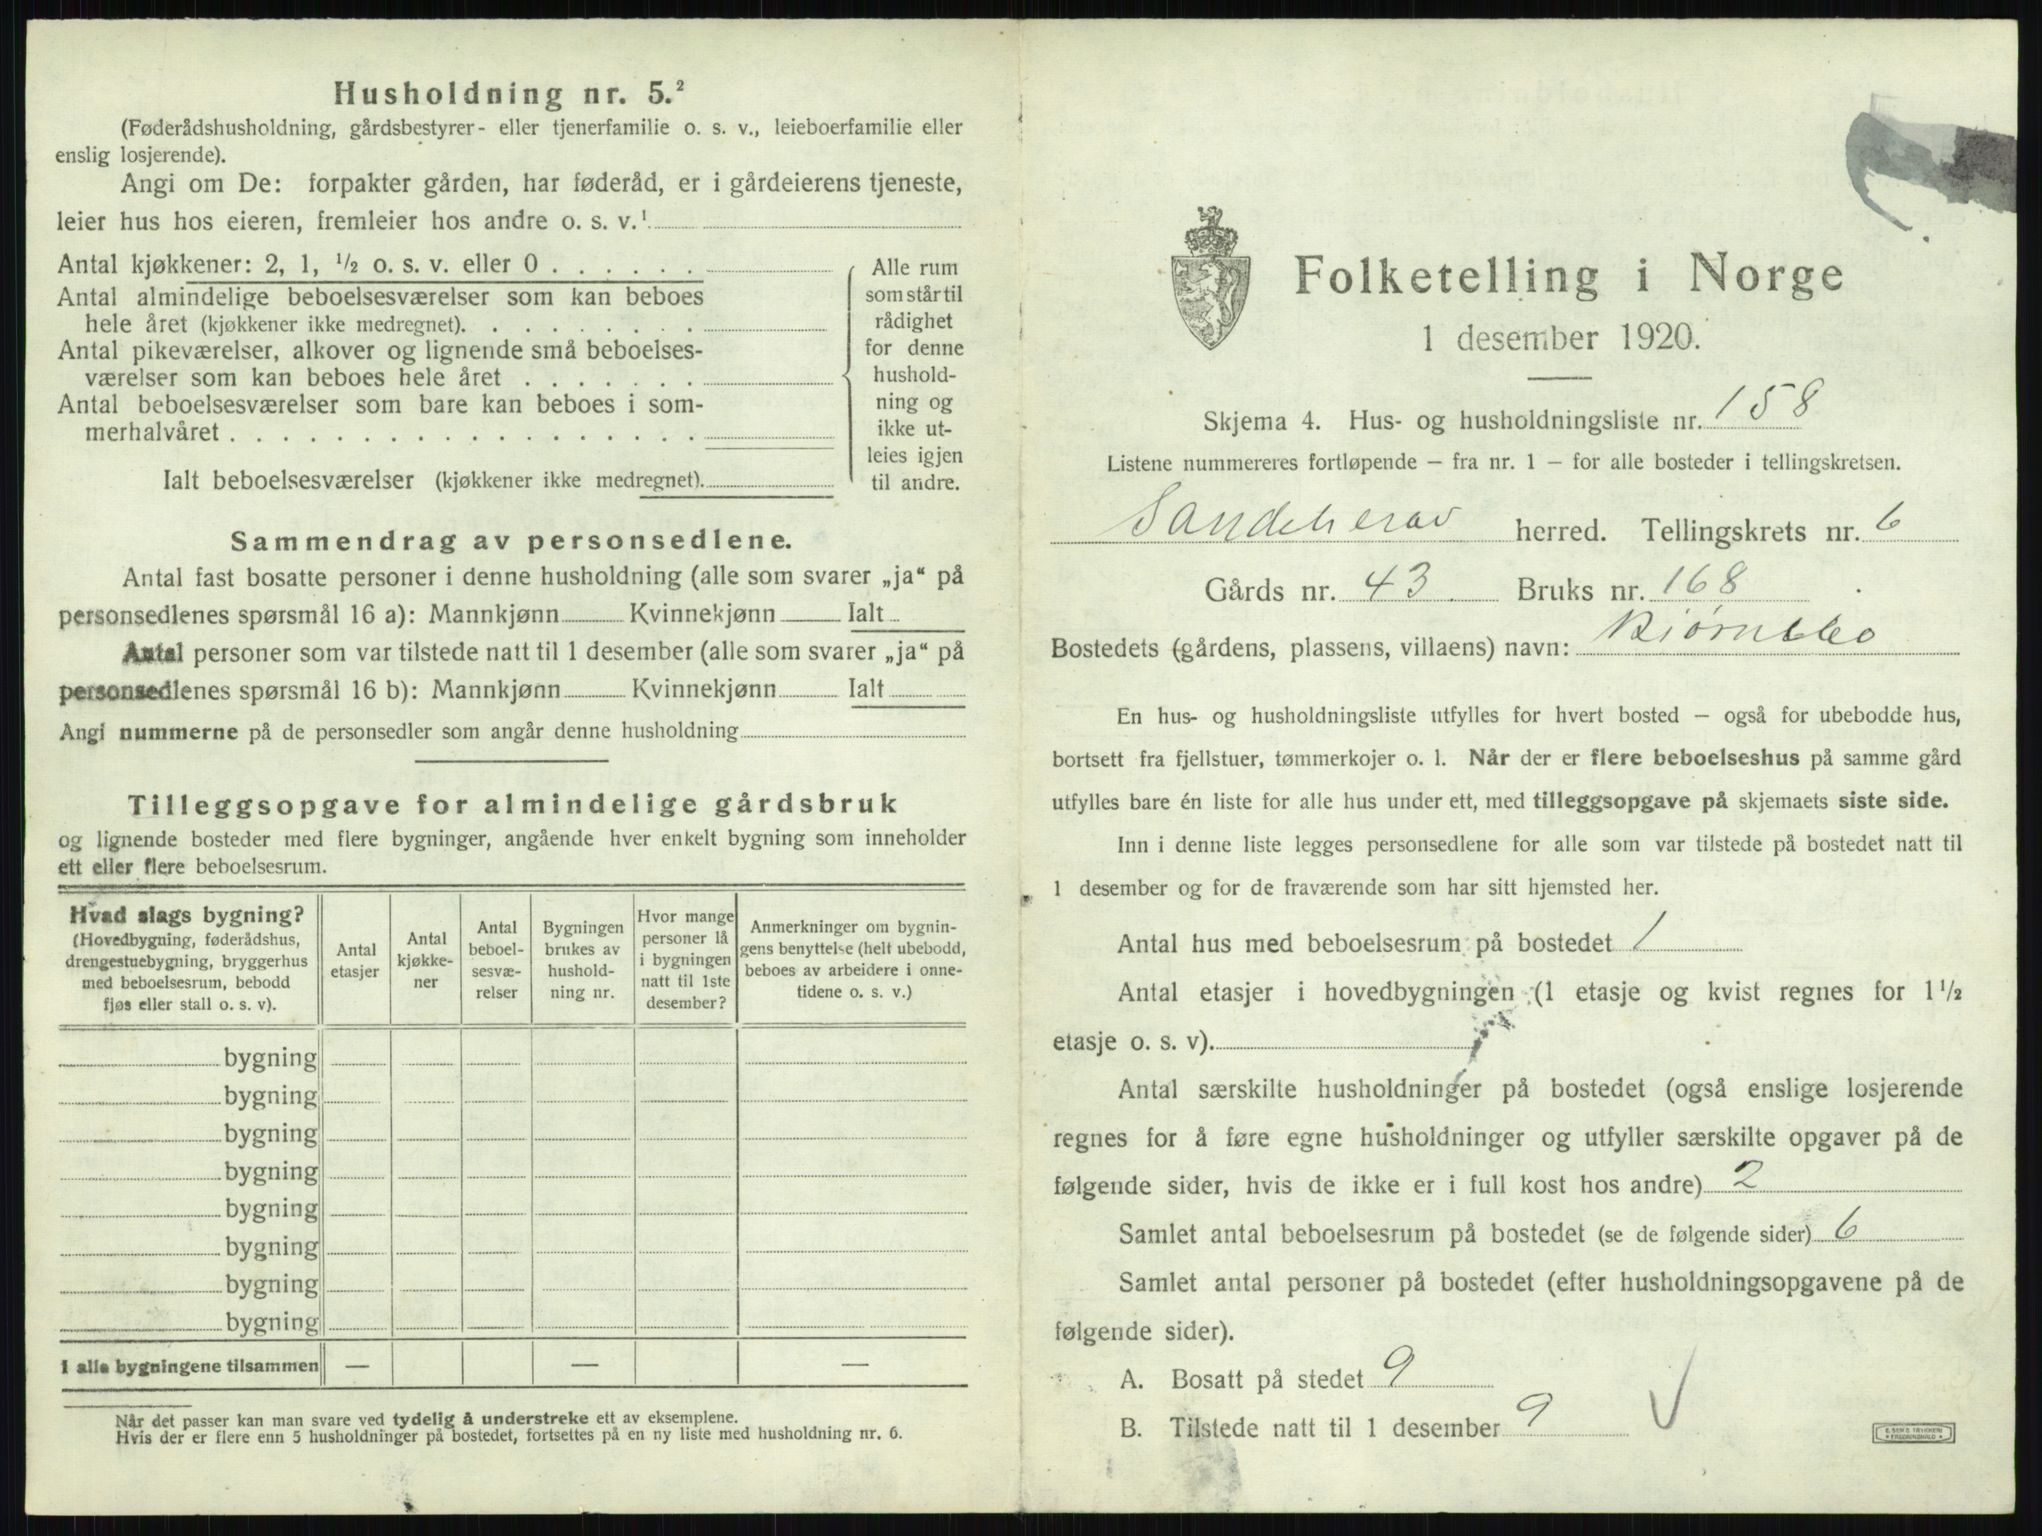 Husholdning nr. 5.²
(Føderådshusholdning, gårdsbestyrer- eller tjenerfamilie o. s. v., leieboerfamilie eller
enslig losjerende).
Angi om De: forpakter gården, har føderåd, er i gårdeierens tjeneste,
leier hus hos eieren, fremleier hos andre o. s. v.¹
Antal kjøkkener: 2, 1, ½ o. s. v. eller 0 . . . . . .
Antal almindelige beboelsesværelser som kan beboes
hele året (kjøkkener ikke medregnet). . . . . . . . .
Antal pikeværelser, alkover og lignende små beboelses-
værelser som kan beboes hele året . . . . . . .
Antal beboelsesværelser som bare kan beboes i som-
merhalvåret . . . . . . . . . . . . . . . . . .
Ialt beboelsesværelser (kjøkkener ikke medregnet).
Alle rum
som står til
rådighet
for denne
hushold-
ning og
ikke ut-
leies igjen
til andre.
Sammendrag av personsedlene.
Antal fast bosatte personer i denne husholdning (alle som svarer „ja“ på
personsedlenes spørsmål 16 a): Mannkjønn Kvinnekjønn Ialt
Antal personer som var tilstede natt til 1 desember (alle som svarer „ja“ på
personsedlenes spørsmål 16 b): Mannkjønn Kvinnekjønn Ialt
Angi nummerne på de personsedler som angår denne husholdning
Tilleggsopgave for almindelige gårdsbruk
og lignende bosteder med flere bygninger, angående hver enkelt bygning som inneholder
ett eller flere beboelsesrum.
Hvad slags bygning?
(Hovedbygning, føderådshus,
drengestuebygning, bryggerhus
med beboelsesrum, bebodd
fjøs eller stall o. s. v).
Antal
etasjer
Antal
kjøkke-
ner
Antal
beboel-
sesvæ-
relser
Bygningen
brukes av
hushold-
ning nr.
Hvor mange
personer lå
i bygningen
natt til 1ste
desember?
Anmerkninger om bygnin-
gens benyttelse (helt ubebodd,
beboes av arbeidere i onne-
tidene o. s. v.)
bygning
bygning
bygning
bygning
bygning
bygning
bygning
bygning
I alle bygningene tilsammen — — —
Når det passer kan man svare ved tydelig å understreke ett av eksemplene.
Hvis der er flere enn 5 husholdninger på bostedet, fortsettes på en ny liste med husholdning nr. 6.
Folketelling i Norge
1 desember 1920.
Skjema 4. Hus- og husholdningsliste nr. 158
Listene nummereres fortløpende – fra nr. 1 – for alle bosteder i tellingskretsen.
Sandeherav herred. Tellingskrets nr. 6
Gårds nr. 43 Bruks nr. 168
Bostedets (gårdens, plassens, villaens) navn:
En hus- og husholdningsliste utfylles for hvert bosted – også for ubebodde hus,
bortsett fra fjellstuer, tømmerkojer o. l. Når der er flere beboelseshus på samme gård
utfylles bare én liste for alle hus under ett, med tilleggsopgave på skjemaets siste side.
Inn i denne liste legges personsedlene for alle som var tilstede på bostedet natt til
1 desember og for de fraværende som har sitt hjemsted her.
Antal hus med beboelsesrum på bostedet 1
Antal etasjer i hovedbygningen (1 etasje og kvist regnes for 1½
etasje o. s. v).
Antal særskilte husholdninger på bostedet (også enslige losjerende
regnes for å føre egne husholdninger og utfyller særskilte opgaver på de
følgende sider, hvis de ikke er i full kost hos andre) 2
Samlet antal beboelsesrum på bostedet (se de følgende sider) 6
Samlet antal personer på bostedet (efter husholdningsopgavene på de
følgende sider).
A. Bosatt på stedet 9
B. Tilstede natt til 1 desember 9